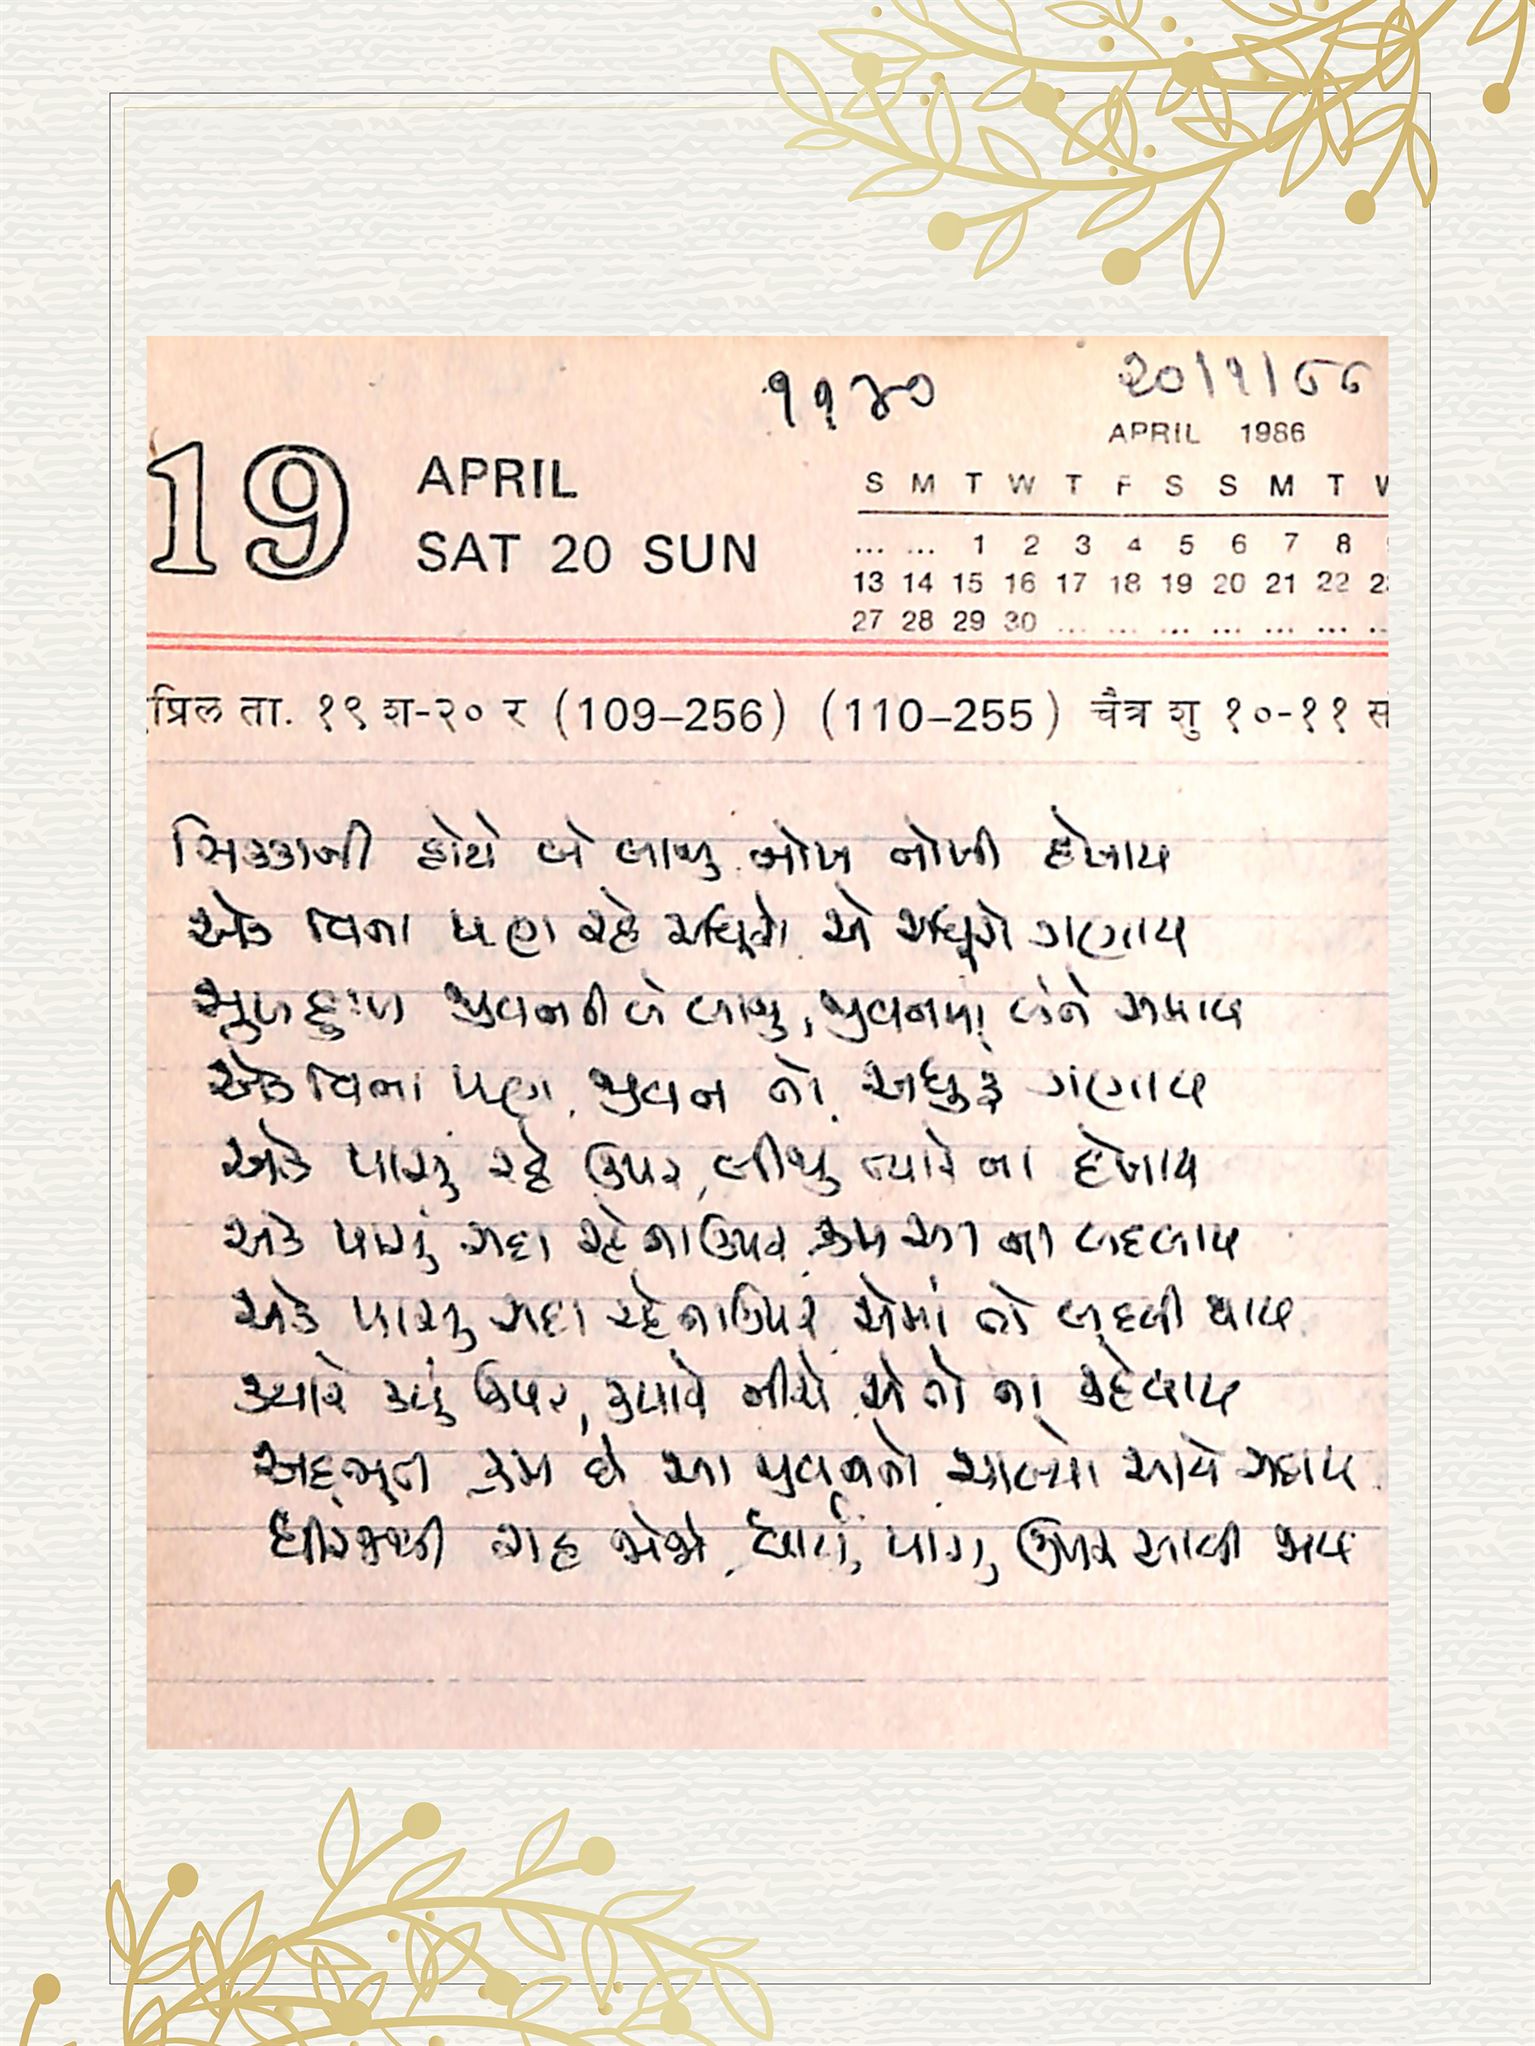 ૧૧૪૦ ૨૦/૧/૮૮
APRIL 1986
19 APRIL
SAT 20 SUN
S M T W T F S S M T W
... ... 1 2 3 4 5 6 7 8
13 14 15 16 17 18 19 20 21 22 2
27 28 29 30 ... ... ... ... ... ... ..
प्रिल ता. १९ श-२० र (109–256) (110–255) चैत्र शु १०-११ सं
સિક્કાની હોયે બે બાજુ નોખ નોખી દેખાય
એક વિના પણ રહે અધૂરો એ અધૂરો ગણાય
સુખ દુઃખ જીવનની બે બાજુ, જીવનમાં બંને સમાય
એક વિના પણ, જીવન તો અધુરૂં ગણાય
એક પાસું રહે ઉપર, બીજુ ત્યારે ના દેખાય
એક પાસું સદા રહે ના ઉપર ક્રમ આ ના બદલાય
એક પાસું સદા રહે ના ઉપર એમાં તો બદલી થાય
ક્યારે કયું ઉપર, ક્યારે નીચે એ તો ના કહેવાય
અદ્ભૂત ક્રમ છે આ જીવનનો ચાલ્યો આવે સદાય
ધીરજથી રાહ જોજે, ધાર્યું પાસું ઉપર આવી જાય